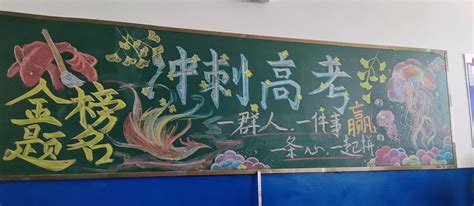 金榜
题名
冲刺高考
一群人.一件事赢
一条心.一起拼